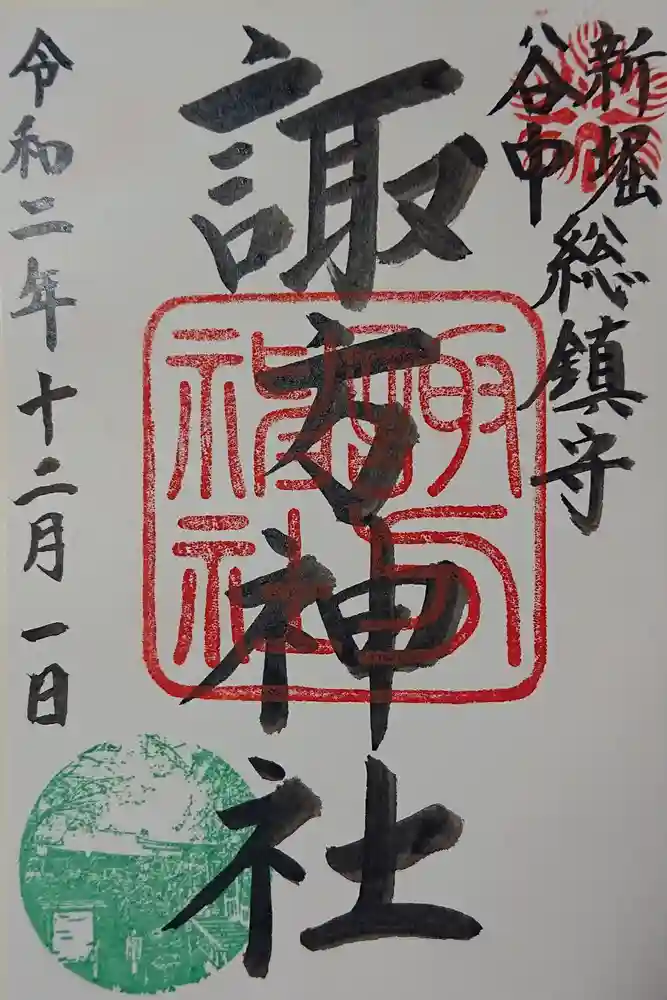 新堀
谷中
総鎮守
諏方神社
令和二年十二月一日
諏方神社